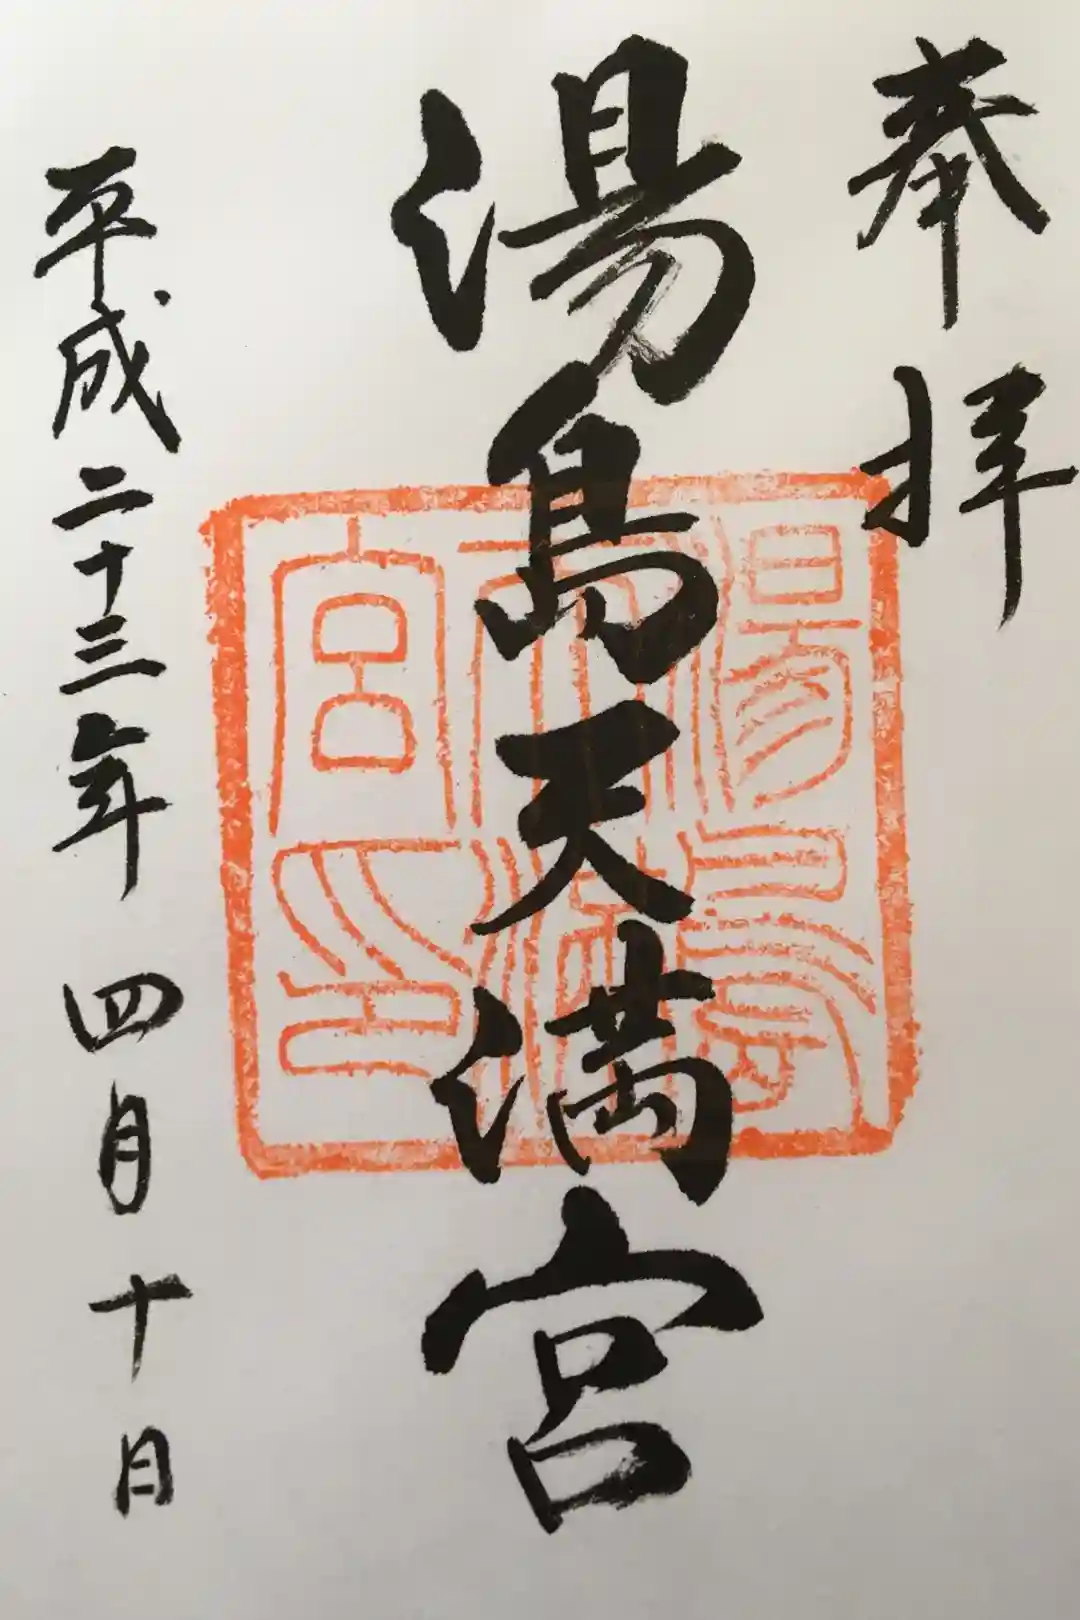 奉拝
湯島天満宮
平成二十三年四月十日
湯島天満宮印